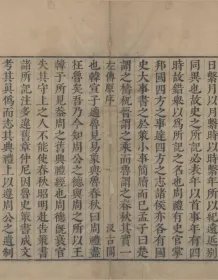 日繫月以月繫時以時繫年所以紀遠近別
同異也故史之所記必表年以首事年有四
時故錯舉以爲所記之名也周禮有史官掌
邦國四方之事達四方之志諸侯亦各有國
史大事書之於策小事簡牘而已孟子曰楚
謂之檮杌晉謂之乘而魯謂之春秋其實一
左傳原序
汲古閣
也韓宣子適魯見易象與魯春秋曰周禮盡
在魯矣吾乃今知周公之德與周之所以王
韓子所見蓋周之舊典禮經也周德既衰官
失其守上之人不能使春秋昭明赴告策書
諸所記注多違舊章仲尼因魯史策書成文
考其真僞而志其典禮上以遵周公之遺制